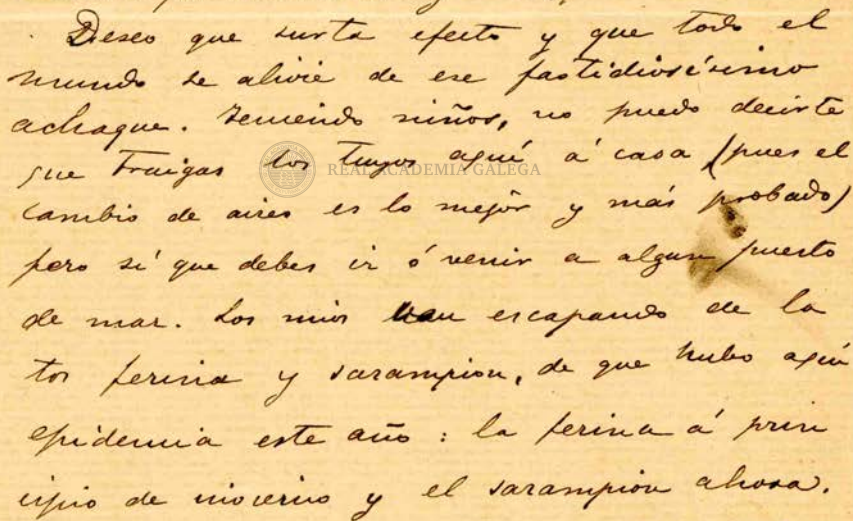 Deseo que surta efecto y que todo el
mundo se alivie de ese fastidiosísimo
achaque. Teniendo niños, no puedo decirte
que traigas los tuyos aquí á casa (pues el
REAL ACADEMIA GALEGA
cambio de aires es lo mejor y más probado)
pero si que debes ir ó venir a algun puerto
de mar. Los mios van escapando de la
tos ferina y sarampion, de que hubo aquí
epidemia este año: la ferina á prin
cipio de invierno y el sarampion ahora.